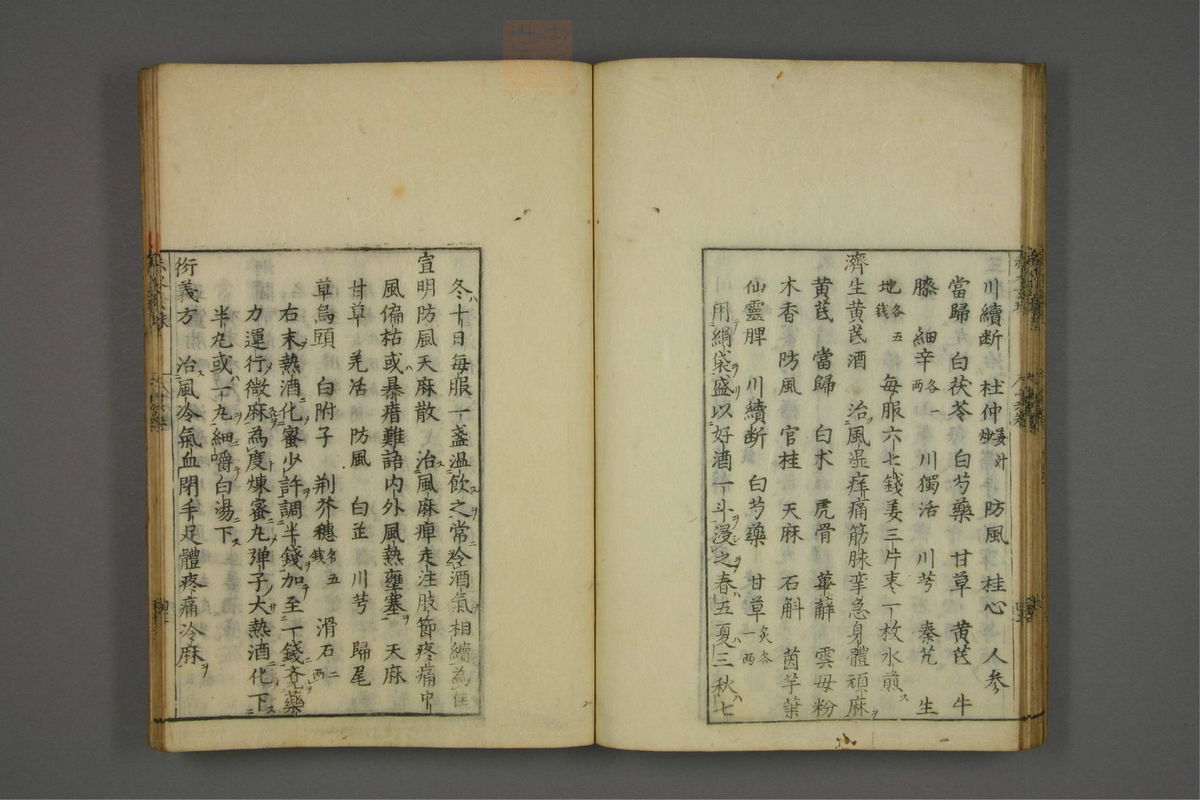 川續斷 杜仲姜汁炒 防風 桂心 人参
當歸 白茯苓 白芍藥 甘草 黄芪 牛
膝 細辛各一兩 川獨活 川芎 秦艽 生
地各五錢 每服六七錢姜三片枣一枚水煎
濟生黄芪酒 治風湿痒痛筋脉挛急身體頑麻
黄芪 當歸 白术 虎骨 萆薢 雲母粉
木香 防風 官桂 天麻 石斛 茵芋葉
仙靈脾 川續断 白芍藥 甘草炙各一兩
用絹袋盛以好酒一斗浸之春五夏三秋七
冬十日每服一盞温飲之常令酒氣相續為佳
宣明防風天麻散 治風麻痺走注肢節疼痛中
風偏枯或暴瘖難語内外風熱壅塞 天麻
甘草 羌活 防風 白芷 川芎 歸尾
草烏頭 白附子 荆芥穗各五錢 滑石二兩
右末熱酒化蜜少許調半錢加至一錢斍藥
力運行微麻為度煉蜜丸弹子大熱酒化下
半丸或一丸細嚼白湯下
衍義方 治風冷氣血閉手足體疼痛冷麻